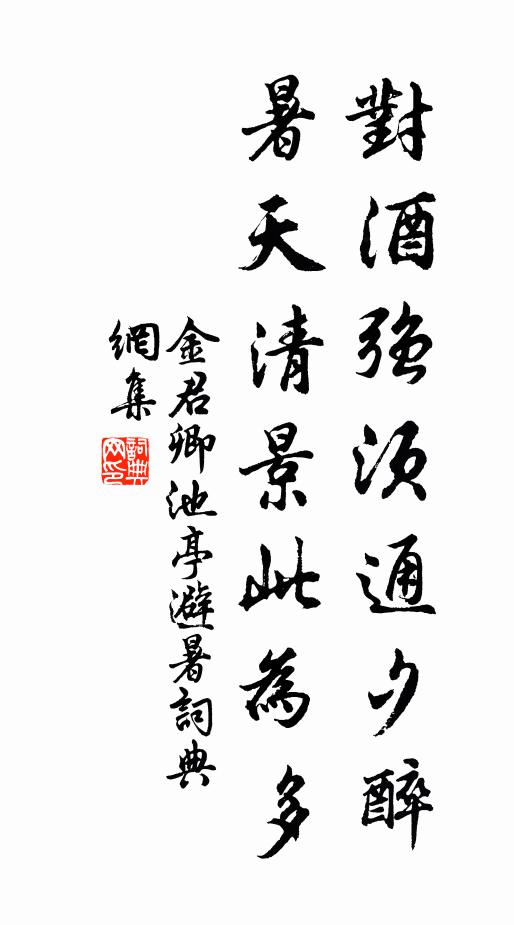 對酒強須通夕醉
暑天清景此為多
金君卿池亭避暑詞典
網集
詞典網印